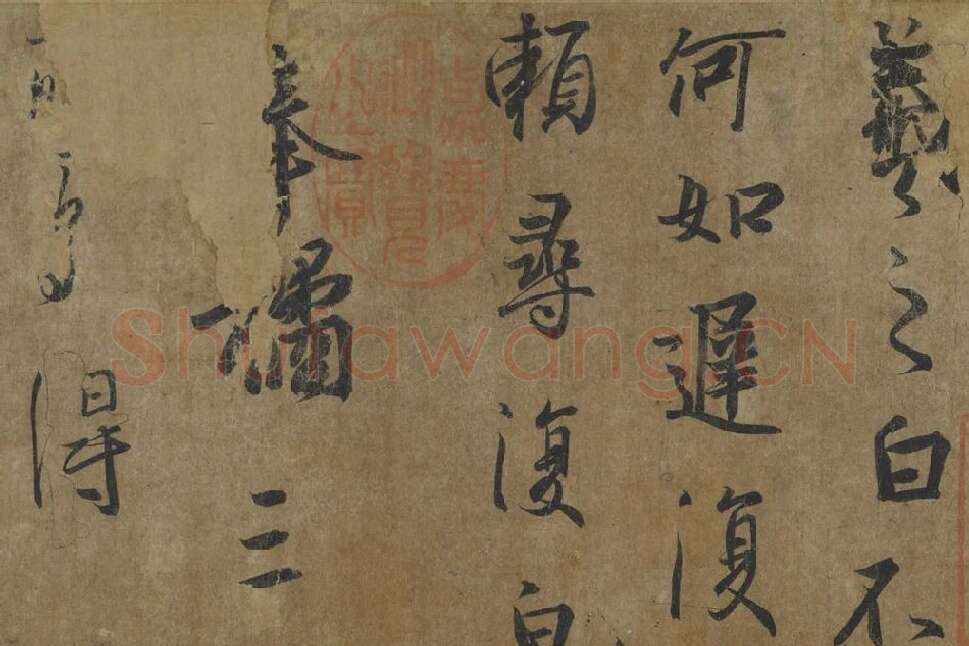 羲之白不
何如遲復
頼尋復白
奉橘三
得
Shufawang.CN